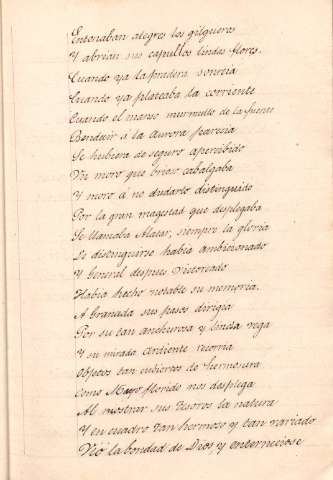 Entonaban alegres los gilgueros
Y abrian sus capullos lindas flores.
Cuando ya la pradera sonreia
Cuando ya plateaba la corriente
Cuando el manso murmullo de la fuente
Bendecir á la aurora parecia
Se hubiera de seguro apercibido
Un moro que brioso cabalgaba
Y moro á no dudarlo distinguido
Por la gran magestad que desplegaba
Se llamaba Alatar, siempre la gloria
De distinguirse habia ambicionado
Y General despues victoreado
Habia hecho notable su memoria.
A Granada sus pasos dirigia
Por su tan anchurosa y linda vega
Y su mirada ardiente recorria
Objetos tan cubiertos de hermosura
Como Mayo florido nos desplega
Al mostrar sus tesoros la natura
Y en cuadro tan hermoso y tan variado
Vió la bondad de Dios, y enterneciose